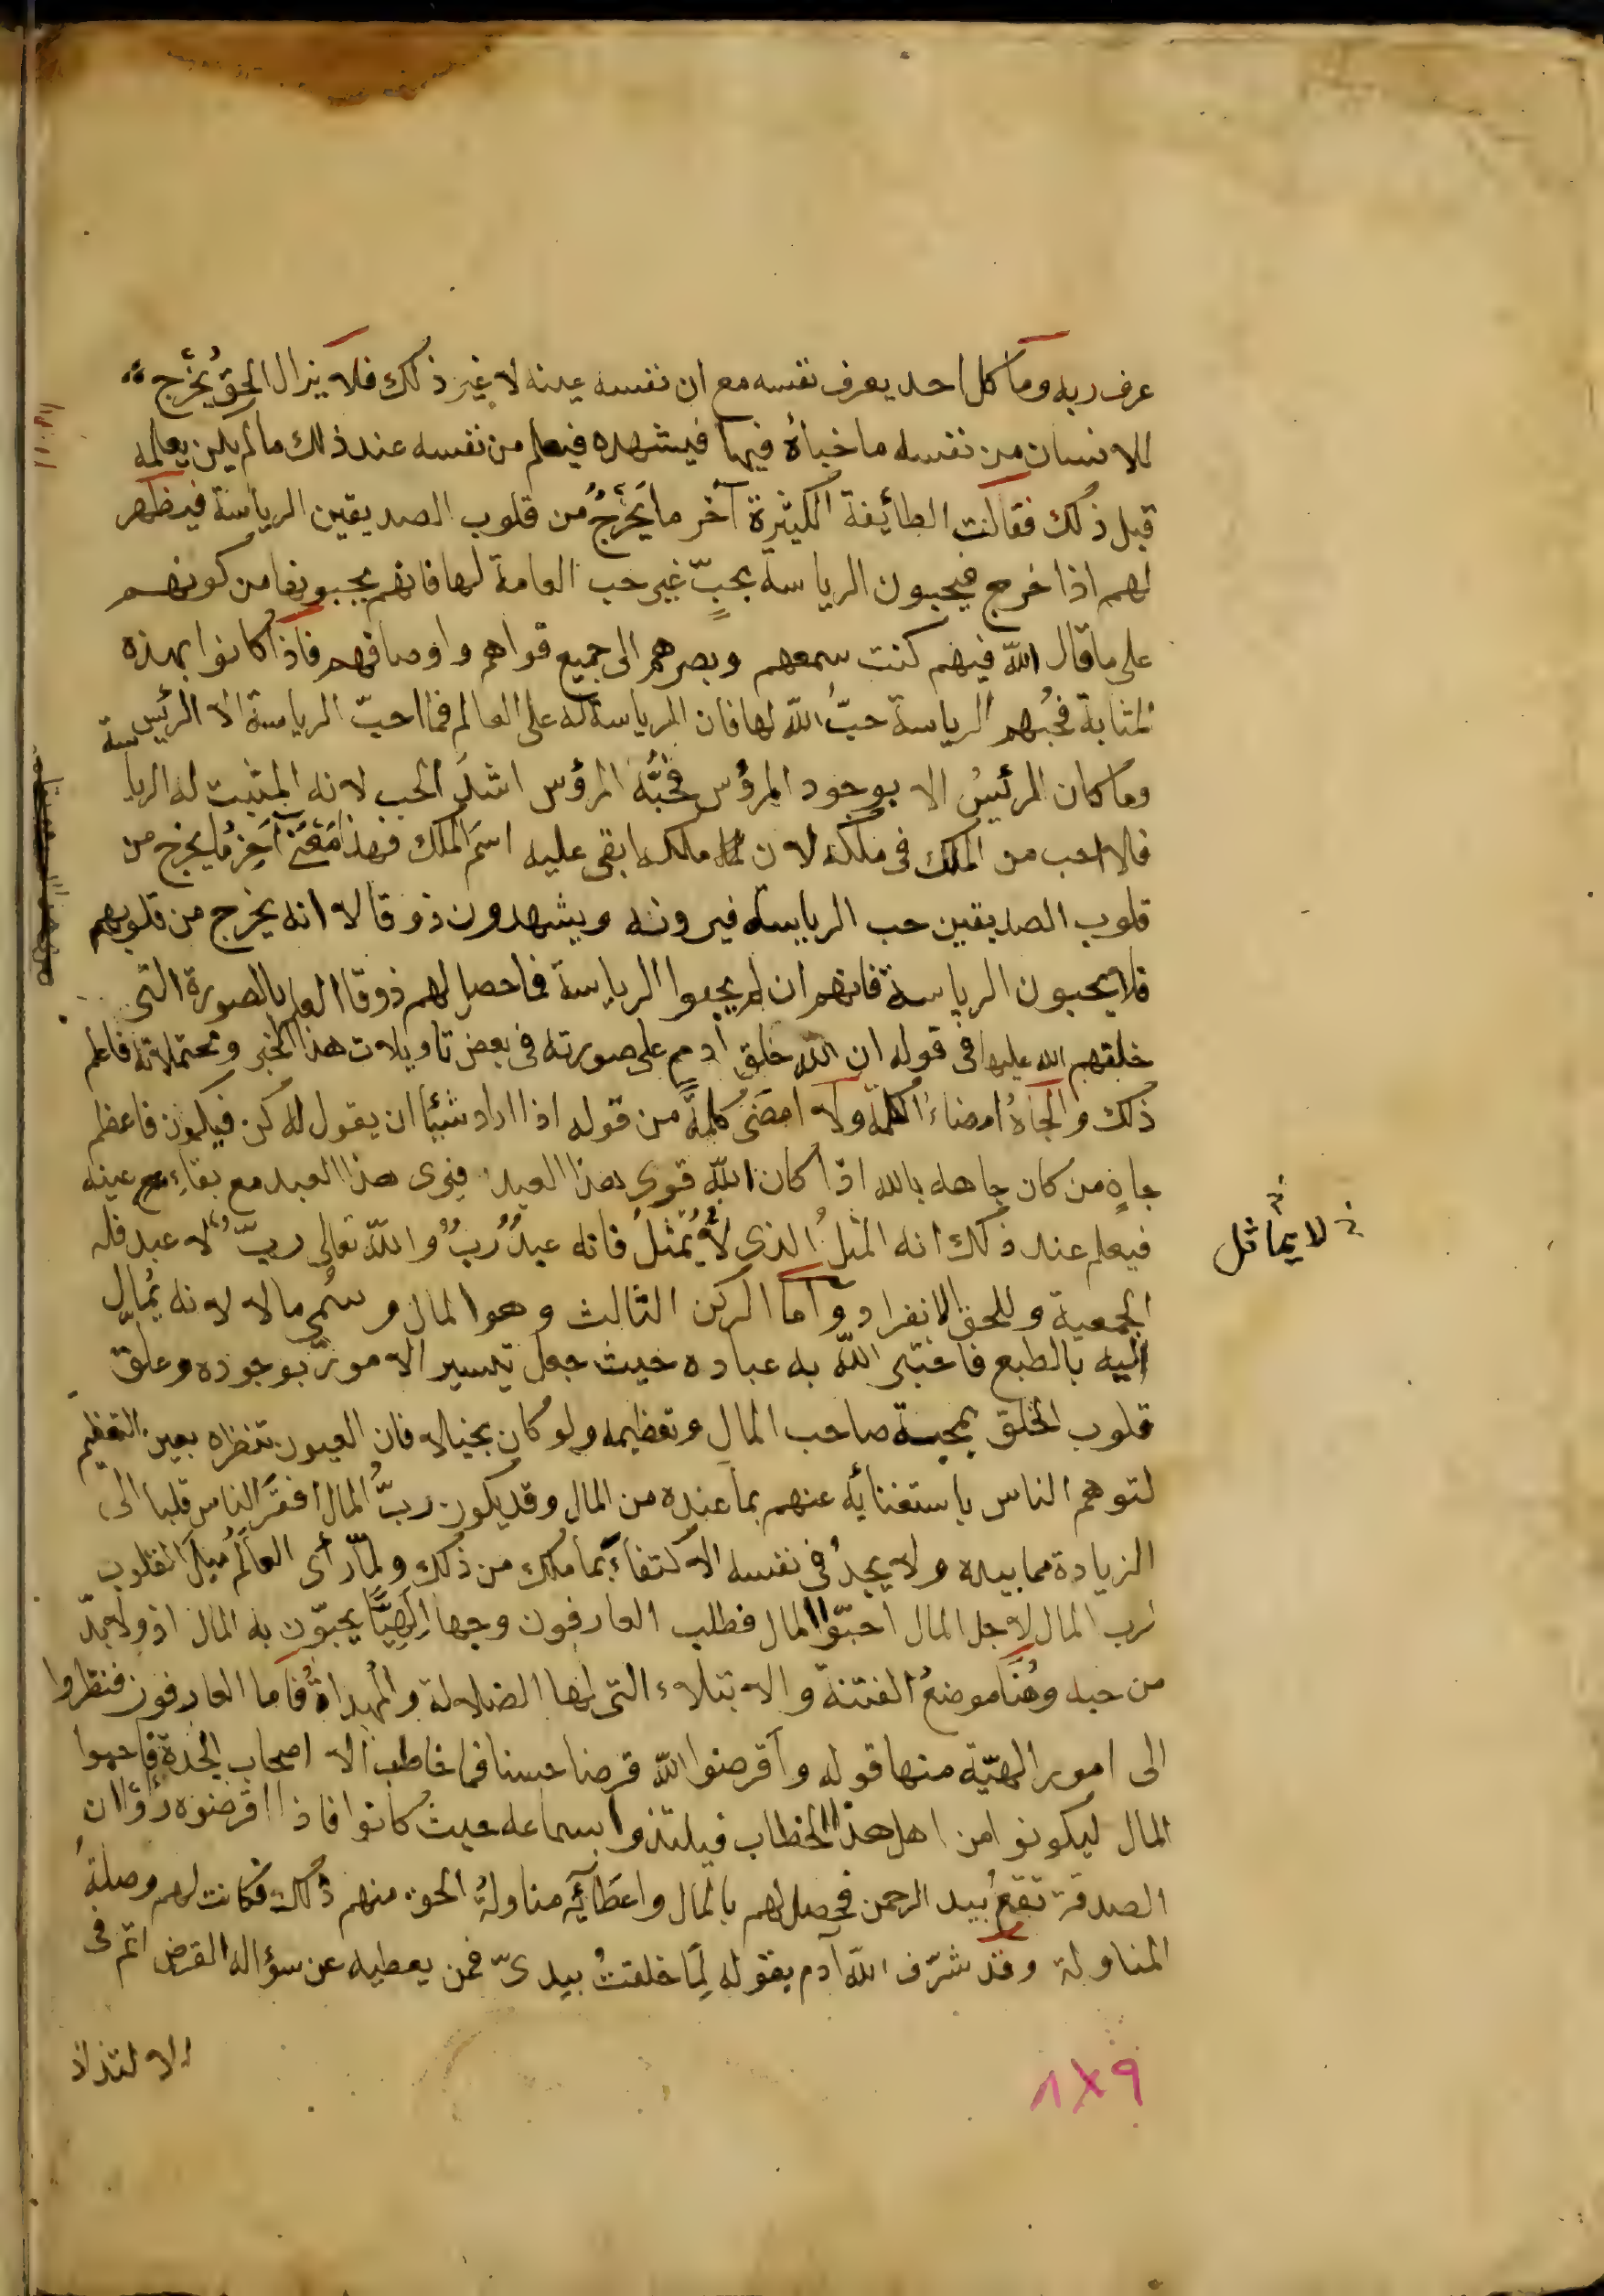 عرف ربه وما كل احد يعرف نفسه مع ان نفسه عينه لا غير ذلك فلا يزال الحق يُخرج
للانسان من نفسه ما خبأه فيها فيشهده فيعلم من نفسه عند ذلك ما لم يكن يعلمه
قبل ذلك فقالت الطائفة الكثيرة آخر ما يَخرُجُ من قلوب الصديقين الرياسة فيظهر
لهم اذا خرج فيحبون الرياسة بحبٍّ غير حب العامة لها فانهم يحبونها من كونهم
على ما قال الله فيهم كنت سمعهم وبصرهم الى جميع قواهم واوصافهم فاذا كانوا بهذه
المثابة فحُبهم الرياسة حبُّ الله لها فان الرياسة له على العالم فما احبّ الرياسة الا الرئيس
وما كان الرئيسُ الا بوجود المرؤس فحبُّه المرؤس اشدّ الحب لانه المثبت له الرياسة
فلا احب من الملك فى ملكه لان ملكه ابقى عليه اسمَ الملك فهذا مَعْنَى آخِرُ ما يخرج من
قلوب الصديقين حب الرياسة فيرونه ويشهدون ذوقا لا انه يخرج من قلوبهم
فلا يحبون الرياسة فانهم ان لم يحبوا الرياسة فما حصل لهم ذوقا العلم بالصورة التى
خلقهم الله عليها فى قوله ان الله خلق آدم على صورته فى بعض تاويلات هذا الخبر ومحتملاته فاعلم
ذلك والجاهُ امضاءُ الكلمة ولا امضَى كلمةً من قوله اذا اراد شيئا ان يقول له كن فيكون فاعظم
جاهٍ من كان جاهه بالله اذا كان الله قوى هذا العبد فيرى هذا العبد مع بقاء عينه
فيعلم عند ذلك انه المثلُ الذى لا يُمَثلُ فانه عبدٌ رُبٌّ والله تعالى ربٌّ لا عبد فله
لا يماثل
الجمعية وللحق الانفراد واما الركن الثالث وهو المال وسُمى مالا لانه يُمال
اليه بالطبع فاختبر الله به عباده حيث جعل تيسير الامور بوجوده وعلق
قلوب الخلق بمحبة صاحب المال وتعظيمه ولو كان بخيلا فان العيون تنظره بعين التعظيم
لتوهم الناس باستغنائه عنهم بما عنده من المال وقد يكون ربُّ المال افقرَ الناس قلبا الى
الزيادة مما بيده ولا يجدُ فى نفسه الاكتفاءَ بما ملك من ذلك ولمّا رأى العالَمُ ميلَ القلوب
لرب المال لاجل المال احبّوا المال فطلب العارفون وجها اِلَهِيًّا يحبّون به المال اذ ولا بدّ
من حبه وهُنا موضعُ الفتنة والابتلاء التى لها الضلالة والمُهداةُ فاما العارفون فنظروا
الى امور الهيّة منها قوله وأقرضوا الله قرضا حسنا فما خاطب الا اصحاب الجدة فاحبوا
المال ليكونوا من اهل هذا الخطاب فيلتذوا بسماعه حيث كانوا فاذا اقرضوه رَؤا ان
الصدقة تقع بيد الرحمن فحصل لهم بالمال واعطائه مناولةُ الحق منهم ذلك فكانت لهم وصلةُ
المناولة وقد شرّف الله آدم بقوله لِمَا خلقتُ بيدىّ فمن يعطيه عن سؤاله القرض اتم فى
الالتذاذ